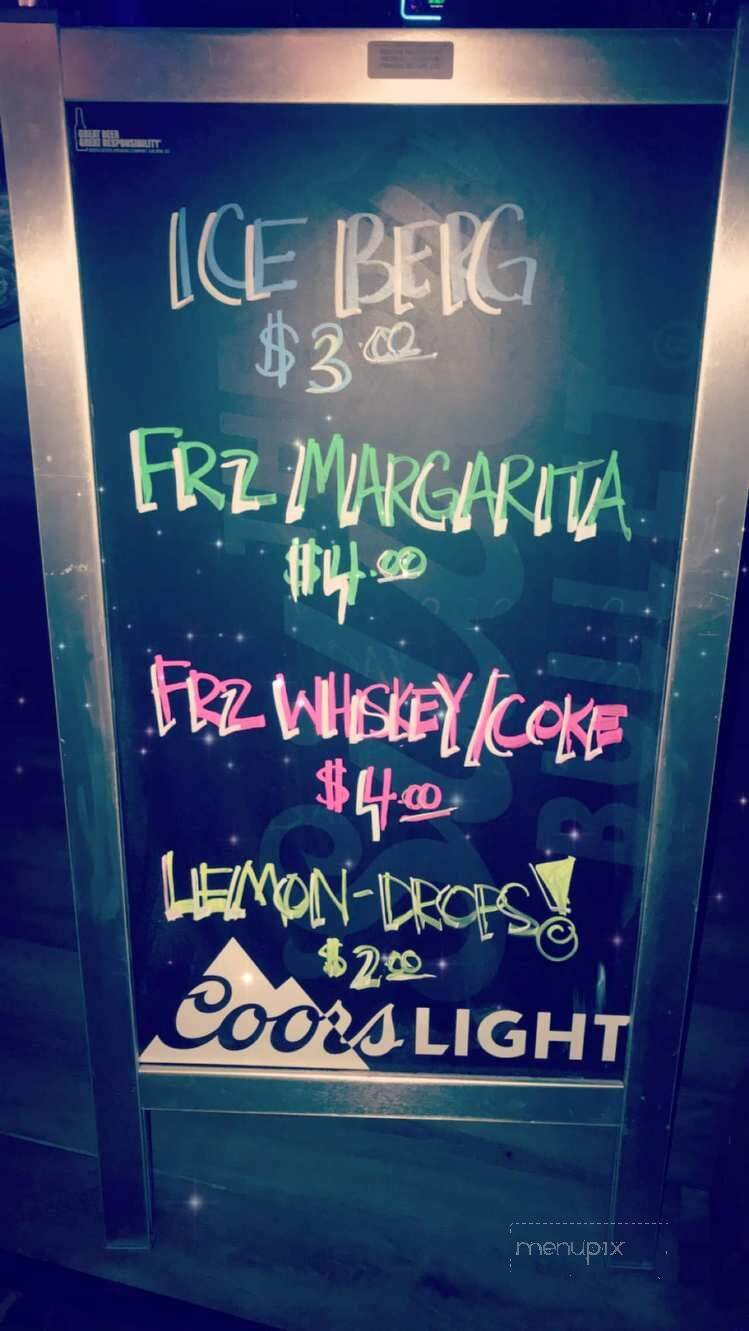 GREAT BEER
GREAT RESPONSIBILITY
ICE BERG
$3.00
FRZ MARGARITA
$4.00
FRZ WHISKEY/COKE
$4.00
LEMON-DROPS!
$2.00
Coors LIGHT
menupix